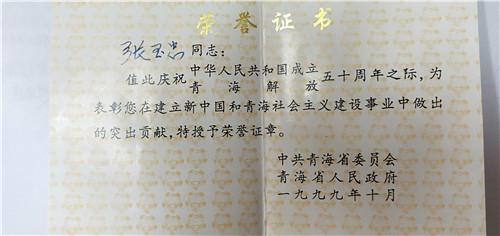 荣誉证书
张玉忠同志:
值此庆祝中华人民共和国成立青海解放五十周年之际,为
表彰您在建立新中国和青海社会主义建设事业中做出
的突出贡献,特授予荣誉证章。
中共青海省委员会
青海省人民政府
一九九九年十月